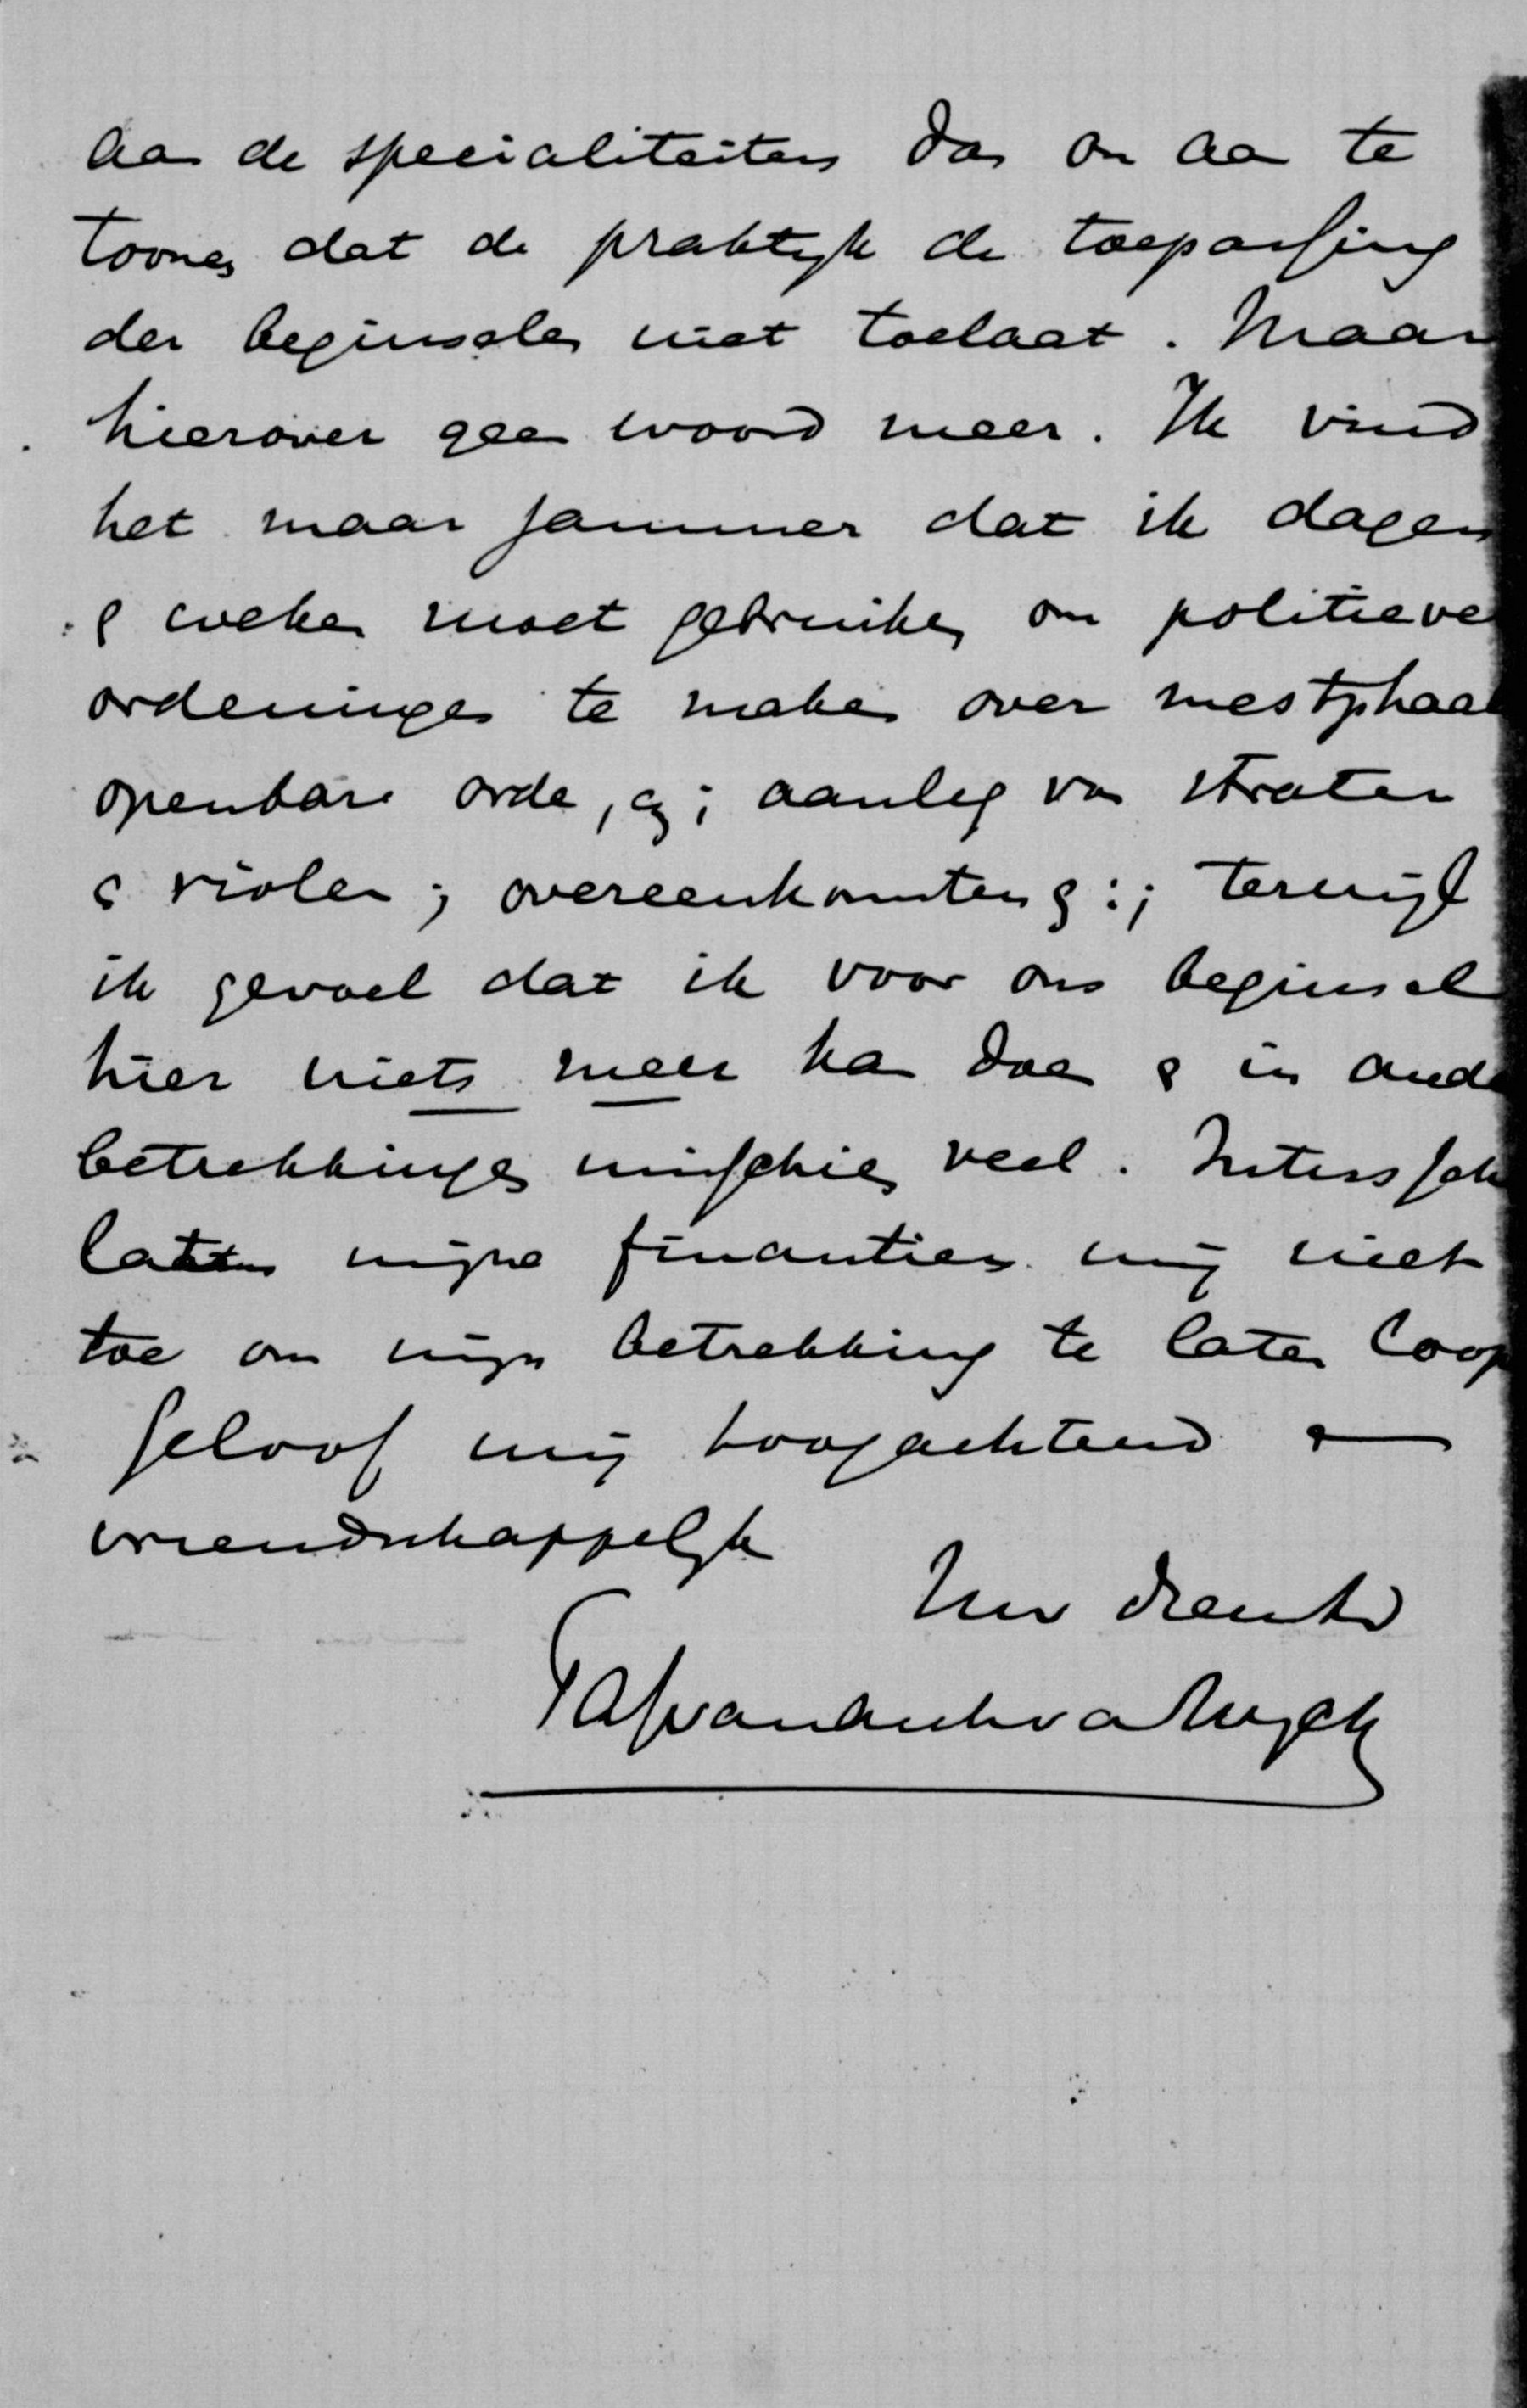 aan de specialiteiten dan om aan te
toonen dat de praktijk de toepassing
der beginselen niet toelaat. Maar
hierover geen woord meer. Ik vind
het maar jammer dat ik dagen
& weken moet gebruiken om politieve
ordeningen te maken over mestvaal
openbare orde, &; aanleg van straten
& riolen; overeenkomsten &; terwijl
ik gevoel dat ik voor ons beginsel
hier niets meer kan doen & in ande
betrekkingen misschien veel. Intusschen
laten mijne finantien mij niet
toe om mijn betrekking te laten loop
Geloof mij hoogachtend &
vriendschappelijk
Uw dienstv